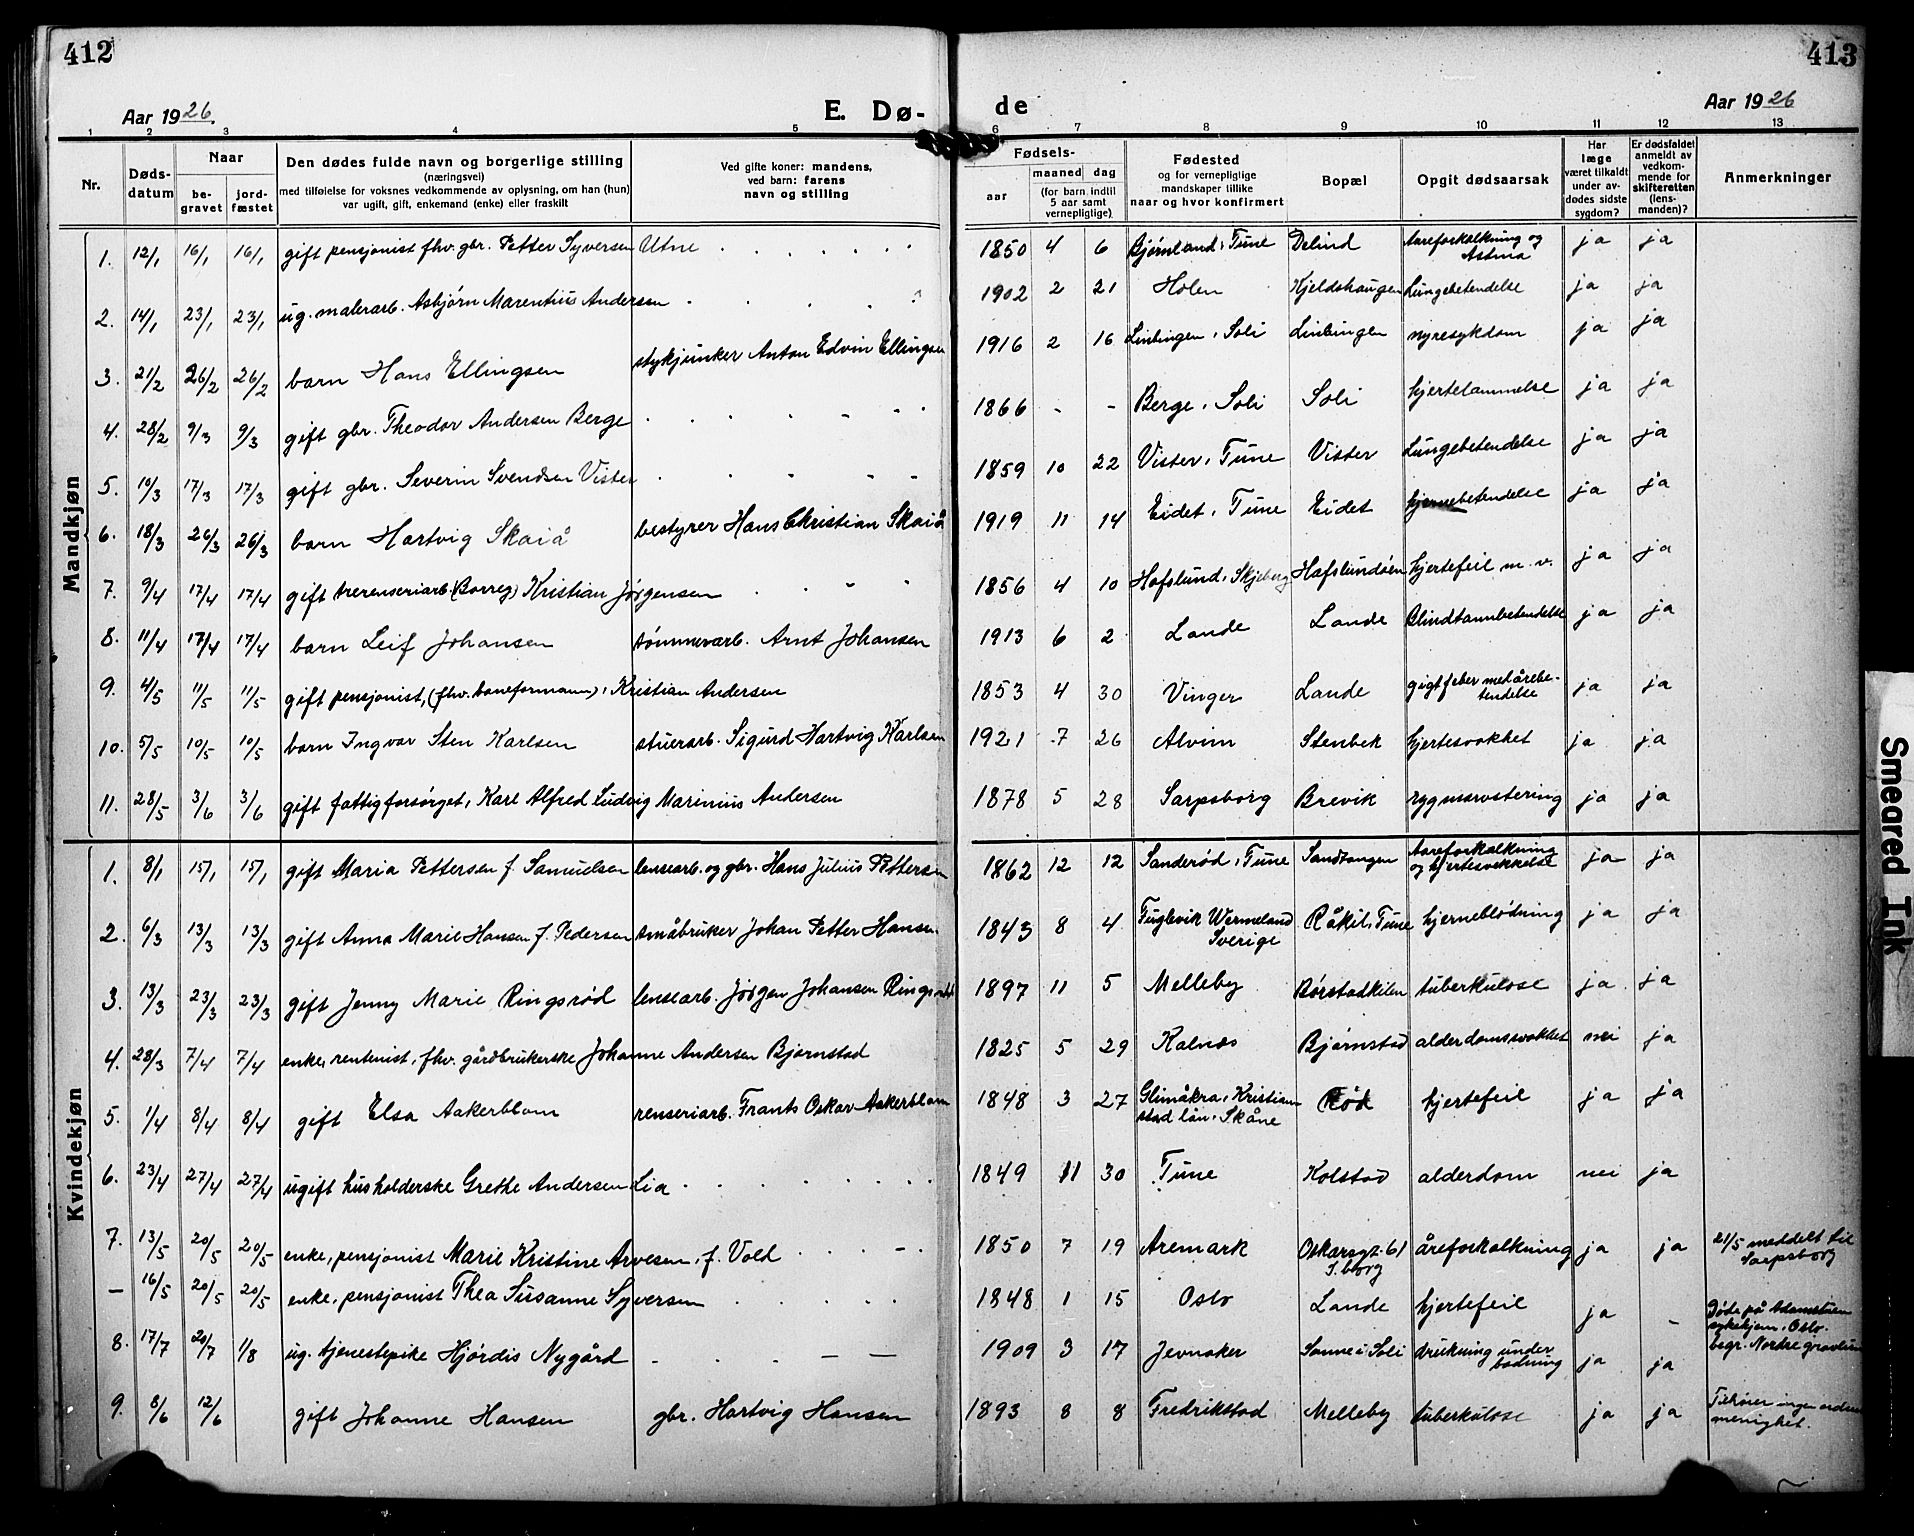 412
413
Aar 1926.
E. Dø-
de
Aar 1926
1 2 3 4 5 6 7 8 9 10 11 12 13
Nr.
Døds-
datum
Naar
be-
gravet
jord-
fæstet
Den dødes fulde navn og borgerlige stilling
(næringsvei)
med tilføielse for voksnes vedkommende av oplysning, om han (hun)
var ugift, gift, enkemand (enke) eller fraskilt
Ved gifte koner: mandens,
ved barn: farens
navn og stilling
Fødsels-
aar
maaned dag
(for barn indtil
5 aar samt
vernepligtige)
Fødested
og for vernepligtige
mandskaper tillike
naar og hvor konfirmert
Bopæl
Opgit dødsaarsak
Har
læge
været tilkaldt
under av-
dødes sidste
sygdom?
Er dødsfaldet
anmeldt av
vedkom-
mende for
skifteretten
(lens-
manden)?
Anmerkninger
Mandkjøn
1. 12/1 16/1 16/1 gift pensjonist fhv. gbr. Petter Syversen Utne 1850 4 6 Bjørnland, Tune Delind Aareforkalkning og Astma ja ja
2. 14/1 23/1 23/1 ug. malerarb. Asbjørn Marentius Andersen 1902 2 21 Holen Kjeldshaugen Lungebetendelse ja ja
3. 21/2 26/2 26/2 barn Hans Ellingsen stykjunker Anton Edvin Ellingsen 1916 2 16 Linbingen, Soli Linbingen nyresykdom ja ja
4. 28/2 9/3 9/3 gift gbr. Theodor Andersen Berge 1866 - - Berge, Soli Soli hjertelammelse ja ja
5. 10/3 17/3 17/3 gift gbr. Severin Svendsen Vister 1859 10 22 Vister, Tune Vister Lungebetendelse ja ja
6. 18/3 26/3 26/3 barn Hartvig Skaiå bestyrer Hans Christian Skaiå 1919 11 14 Eidet, Tune Eidet hjernebetendelse ja ja
7. 9/4 17/4 17/4 gift trerenseriarb. (Borreg) Kristian Jørgensen 1856 4 10 Hafslund, Skjeberg Hafslundøen hjertefeil m. v. ja ja
8. 11/4 17/4 17/4 barn Leif Johansen tømmerarb. Arnt Johansen 1913 6 2 Lande Lande Blindtarmbetendelse ja ja
9. 4/5 11/5 11/5 gift pensjonist, (fhv. baneformann), Kristian Andersen 1853 4 30 Vinger Lande gigtfeber med årebe-
tendelse ja ja
10. 5/5 10/5 10/5 barn Ingvar Sten Karlsen stuerarb. Sigurd Hartvig Karlsen 1921 7 26 Alvim Stenbek hjertesvakhet ja ja
11. 28/5 3/6 3/6 gift fattigforsørget, Karl Alfred Ludvig Marinius Andersen 1878 5 28 Sarpsborg Brevik rygmarvstering ja ja
Kvindekjøn
1. 8/1 15/1 15/1 gift Maria Pettersen f. Samuelsen lensearb. og gbr. Hans Julius Pettersen 1862 12 12 Sanderød, Tune Sandtangen Aareforkalkning
og hjertesvekkelse ja ja
2. 6/3 13/3 13/3 gift Anna Marie Hansen f. Pedersen småbruker Johan Petter Hansen 1843 8 4 Fuglevik Wermeland
Sverige Råkil, Tune hjerneblødning ja ja
3. 13/3 23/3 23/3 gift Jenny Marie Ringsrød lensearb. Jørgen Johansen Ringsrød 1897 11 5 Melleby Børstadkilen tuberkulose ja ja
4. 28/3 7/4 7/4 enke, rentenist, fhv. gårdbrukerske Johanne Andersen Bjørnstad 1825 5 29 Kalnæs Bjørnstad alderdomssvakhet nei ja
5. 1/4 8/4 8/4 gift Elsa Aakerblom renseriarb. Frants Oskar Aakerblom 1848 3 27 Glimåkra, Kristian
stad län, Skåne Rød hjertefeil ja ja
6. 23/4 27/4 27/4 ugift husholderske Grethe Andersen Lia 1849 11 30 Tune Kolstad alderdom nei ja
7. 13/5 20/5 20/5 enke, pensjonist Marie Kristine Arvesen, f. Vold 1850 7 19 Aremark Oskarsgt. 61
S.borg åreforkalkning ja ja 21/5 meddelt til
Sarpsborg
— 16/5 20/5 20/5 enke, pensjonist Thea Susanne Syversen 1848 1 15 Oslo Lande hjertefeil ja - Døde på Adamstuen
sykehjem, Oslo.
begr. Nordre gravlund
8. 17/7 20/7 1/8 ug. tjenestepike Hjørdis Nygård 1909 3 17 Jevnaker Sanne i Soli drukning under
badning ja ja
9. 8/6 12/6 gift Johanne Hansen gbr. Hartvig Hansen 1893 8 8 Fredrikstad Melleby tuberkulose ja ja Tilhører ingen
menighet.
Smeared Ink